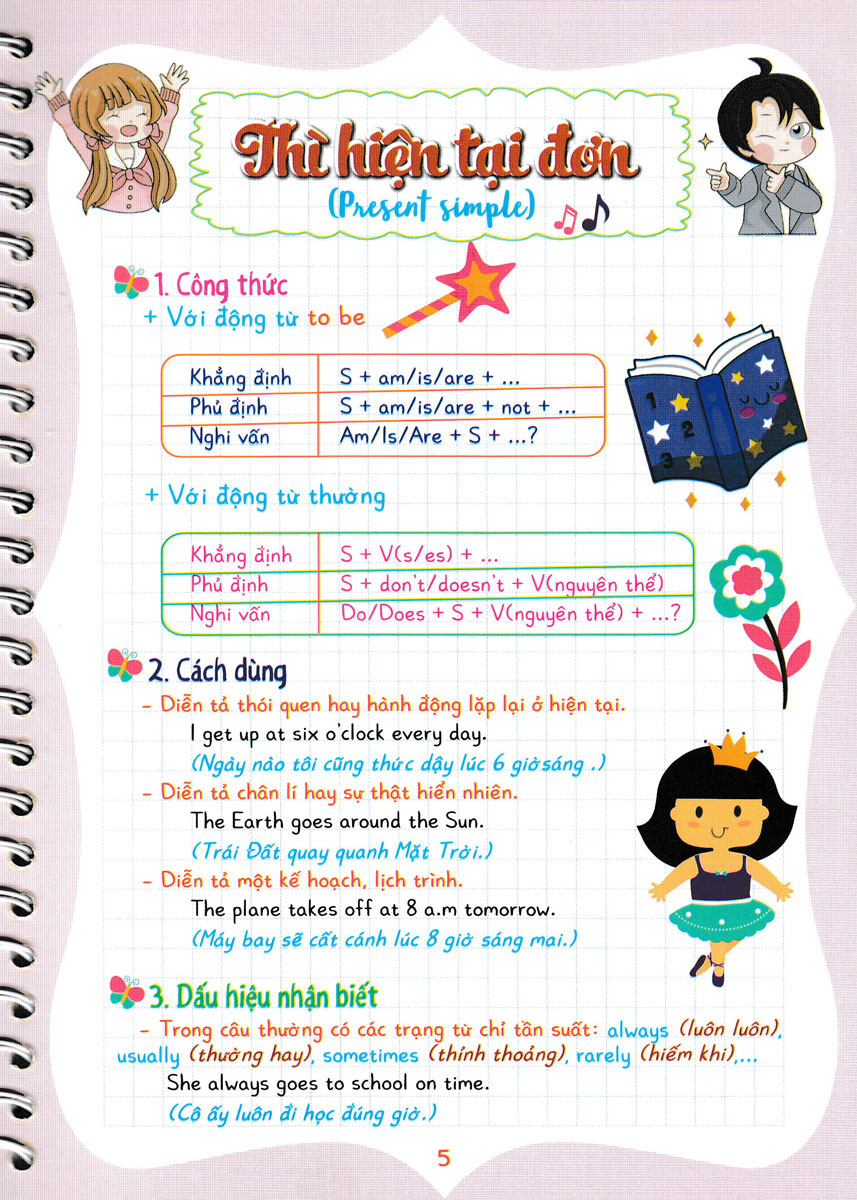 Thì hiện tại đơn
(Present simple)
1. Công thức
+ Với động từ to be
Khẳng định S + am/is/are + ...
Phủ định S + am/is/are + not + ...
Nghi vấn Am/Is/Are + S + ...?
1
2
3
+ Với động từ thường
Khẳng định S + V(s/es) + ...
Phủ định S + don't/doesn't + V(nguyên thể)
Nghi vấn Do/Does + S + V(nguyên thể) + ...?
2. Cách dùng
- Diễn tả thói quen hay hành động lặp lại ở hiện tại.
I get up at six o'clock every day.
(Ngày nào tôi cũng thức dậy lúc 6 giờsáng .)
- Diễn tả chân lí hay sự thật hiển nhiên.
The Earth goes around the Sun.
(Trái Đất quay quanh Mặt Trời.)
- Diễn tả một kế hoạch, lịch trình.
The plane takes off at 8 a.m tomorrow.
(Máy bay sẽ cất cánh lúc 8 giờ sáng mai.)
3. Dấu hiệu nhận biết
- Trong câu thường có các trạng từ chỉ tần suất: always (luôn luôn),
usually (thường hay), sometimes (thỉnh thoảng), rarely (hiếm khi),...
She always goes to school on time.
(Cô ấy luôn đi học đúng giờ.)
5